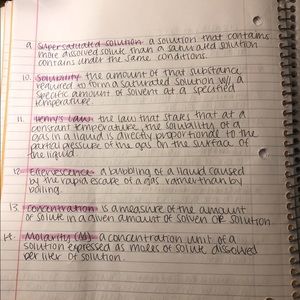 9. supersaturated solution- a solution that contains
more dissolved solute than a saturated solution
contains under the same conditions.
10. Solubility- the amount of that substance
required to form a saturated solution w/ a
specific amount of solvent at a specified
temperature.
11. Henry's Law- the law that states that at a
constant temperature, the solubility of a
gas in a liquid is directly proportional to the
partial pressure of the gas on the surface of
the liquid.
12. Effervescence- a bubbling of a liquid caused
by the rapid escape of a gas rather than by
boiling.
13. Concentration- is a measure of the amount
of solute in a given amount of solven OR solution.
14. Molarity (M)- a concentration unit of a
solution expressed as moles of solute dissolved
per liter of solution.